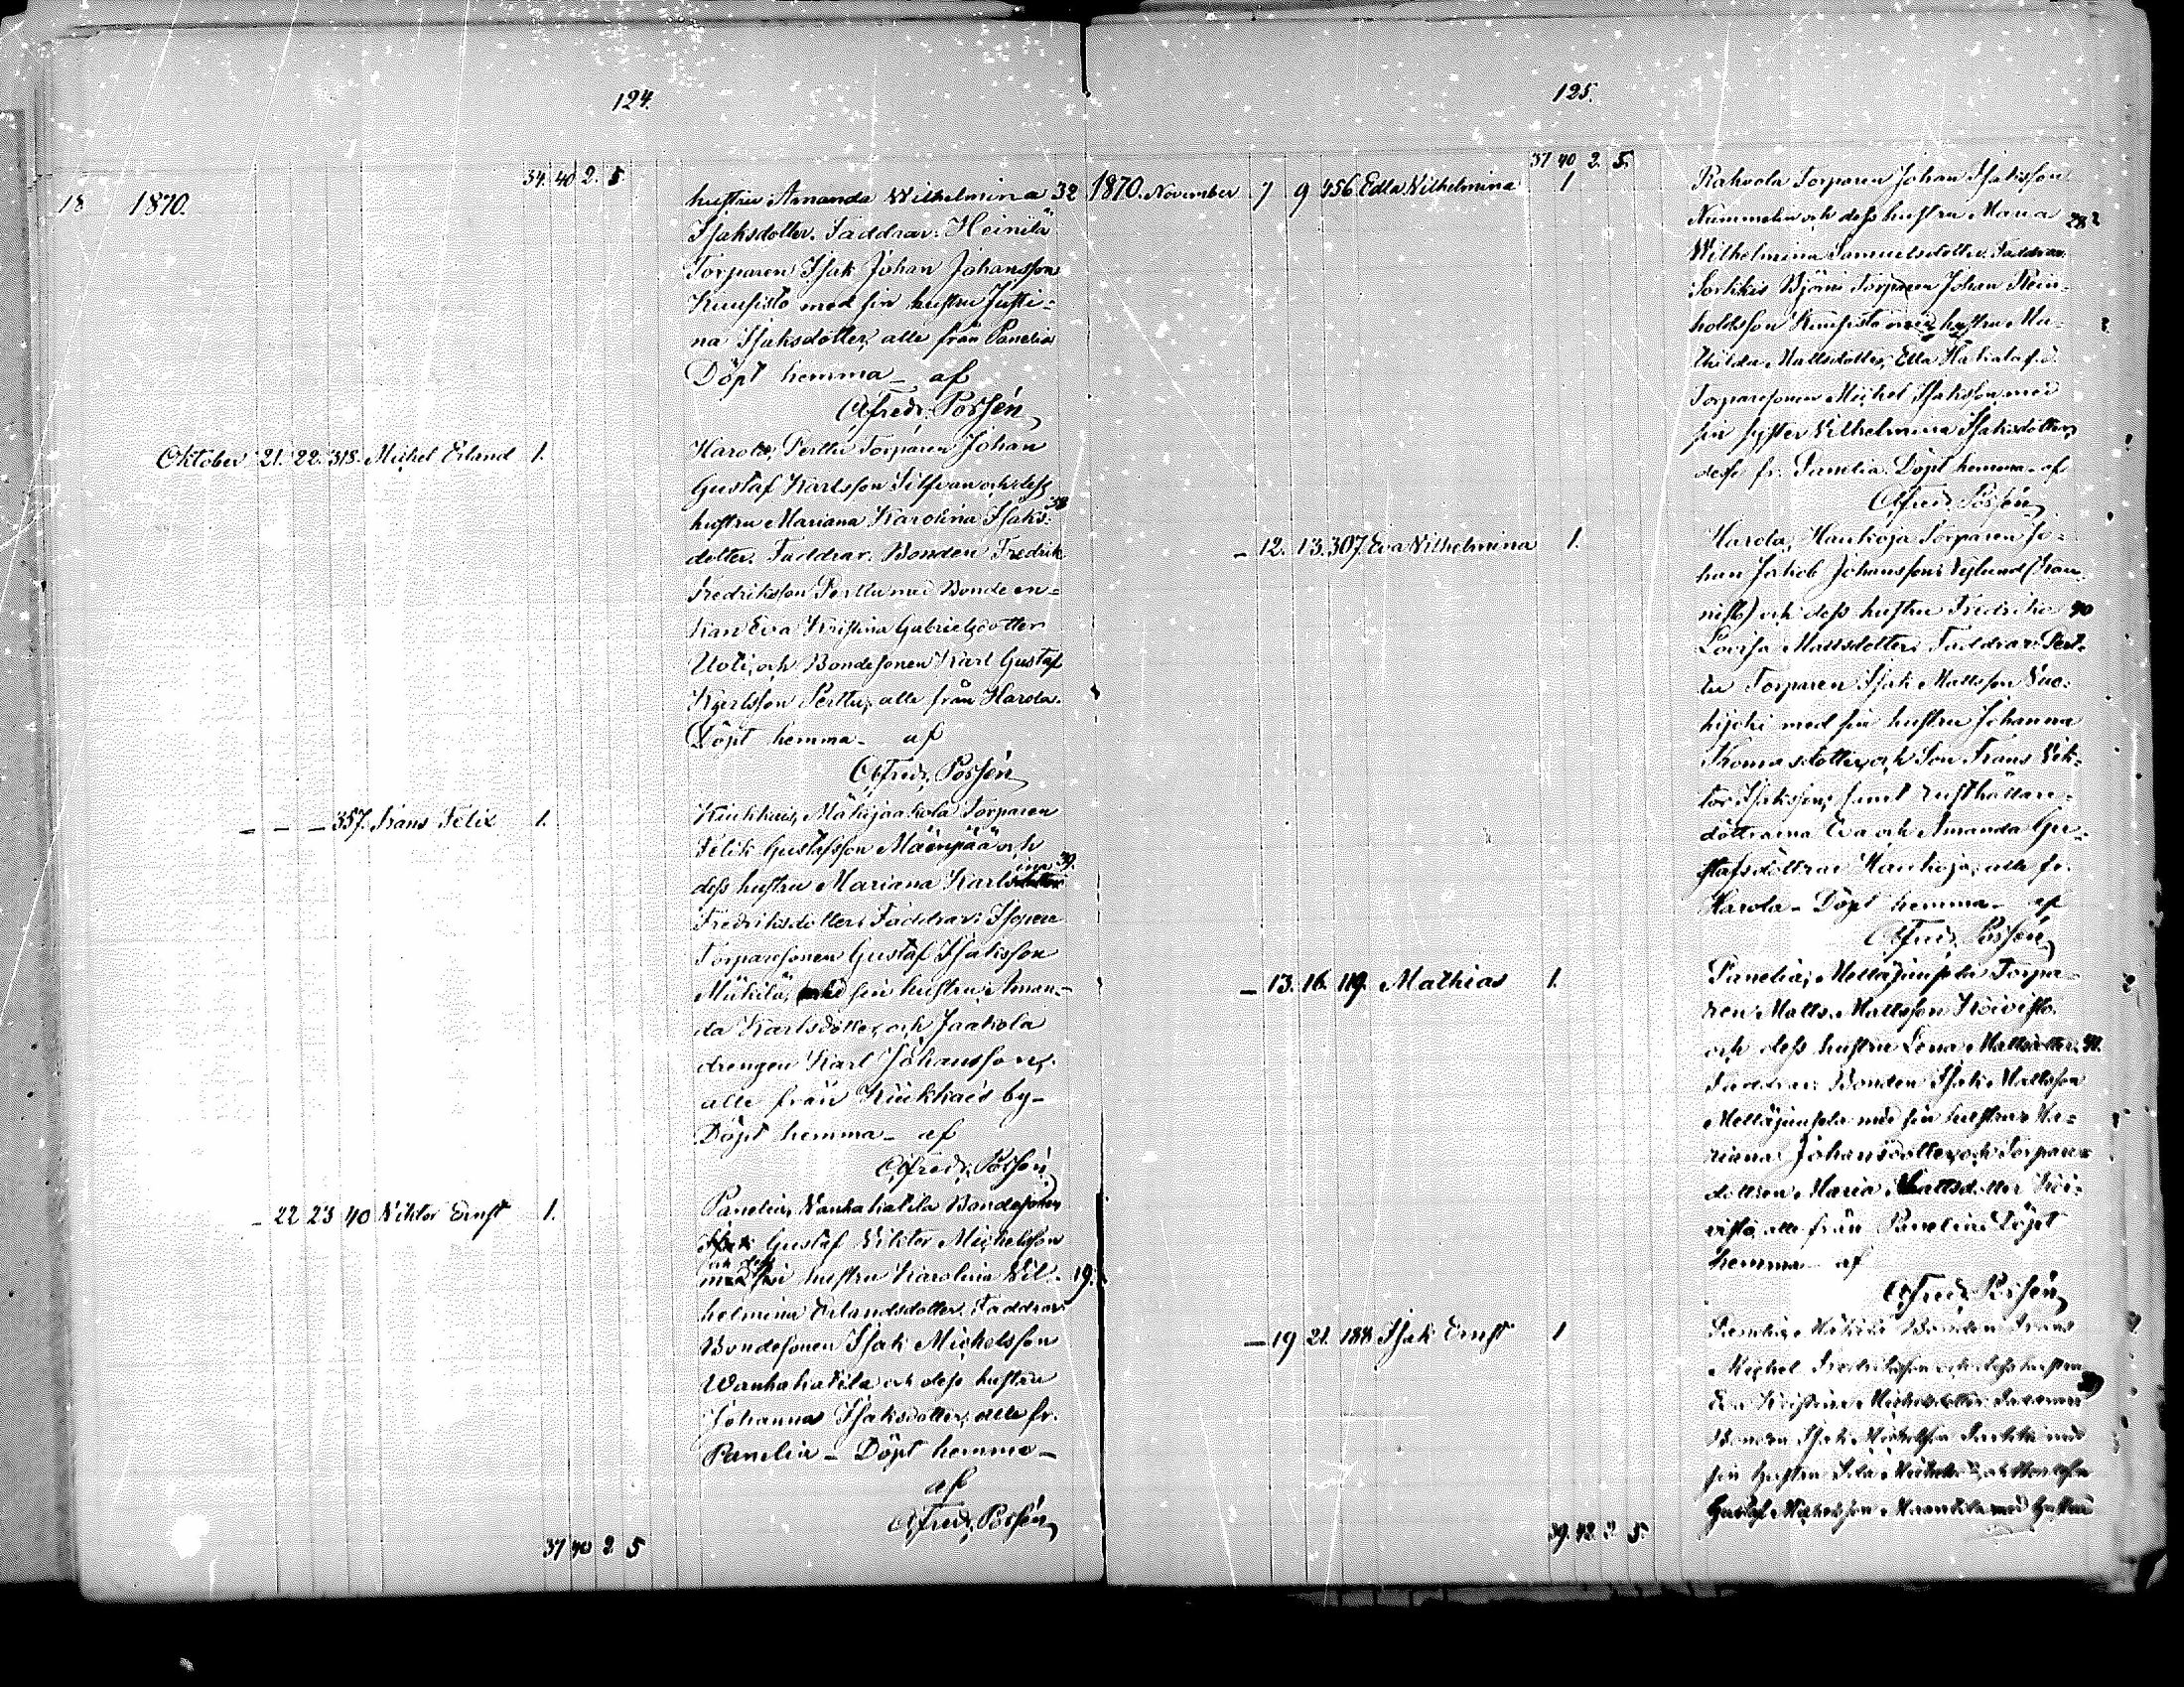 124.
34. 40 2. 5
18 1870.
hustru Amanda Wilhelmina 32
Isaksdotter. Faddrar: Heinilä
Torparen Isak Johan Johansson
Kuusisto med sin hustru Justi-
na Isaksdotter, alle från Panelia
Döpt hemma af
Alfred Possén
Oktober 21. 22. 318. Michel Erland 1.
Harola, Perttu Torparen Johan
Gustaf Karlsson Silfvan och dess
hustru Mariana Karolina Isaks- 38
dotter. Faddrar. Bonden Fredrik
Fredriksson Perttu med Bondeen-
kan Eva Kristina Gabrielsdotter
Uoti, och Bondesonen Karl Gustaf
Karlsson Perttu, alle från Harola.
Döpt hemma af
Alfred Possén
— — — 357. Frans Felix 1.
Kiukkais, Mäkijaakola Torparen
Felik Gustafsson Mäenpää och
dess hustru Mariana Karlina 39.
Fredriksdotter. Faddrar:
Torparesonen Gustaf Isaksson
Mäkilä, med sin hustru Aman-
da Karlsdotter, och Jaakola
drengen Karl Johansson,
alle från Kiukkais by-
Döpt hemma- af
Alfred Possén
— 22 23 40 Viktor Ernst 1.
Panelia, Vanhakatila Bondesonen
Gustaf Viktor Michelsson
och dess hustru Karolina Vil- 19.
helmina Erlandsdotter. Faddrar
Bondesonen Isak Michelsson
Wanhakatila och dess hustru
Johanna Isaksdotter, alle fr.
Panelia - Döpt hemma -
af
Alfred Possén
37 40 2 5
125.
37 40 2. 5.
1870. November 7 9 456 Edla Vilhelmina 1
Torparen Johan Isaksson
Nummelin och dess hustru Maria 28
Wilhelmina Samuelsdotter. Faddrar:
Sorkkis Björni Torparen Johan Rein-
holdsson Kuusisto med hustru Ma-
thilda Mattsdotter, Ella
Torparesonen Michel Isaksson med
sin syster Vilhelmina Isaksdotter,
desse fr. Panelia. Döpt hemma - af
Alfred Possén
— 12. 13. 307. Eva Vilhelmina 1.
Harola, Haukoja Torparen Jo-
han Jakob Johansson Nylund
och dess hustru Fredrika 40
Lovisa Mattsdotter. Faddrar: Pert-
tu Torparen Isak Mattsson Vuo-
hijoki med sin hustru Johanna
Thomasdotter, och Son Frans Vik-
tor Isaksson, samt rusthållare-
döttrarna Eva och Amanda Gu-
stafsdöttrar Haukoja, alle fr.
Harola - Döpt hemma - af
Alfred Possén
— 13. 16. 119. Mathias 1.
Panelia, Mellä Torpa-
ren Matts Mattsson Koivisto.
och dess hustru Lena Mattsdotter.
Faddrar: Bonden Isak Mattsson
med sin hustru Ma-
riana Johansdotter, och Torpare
dottren Maria Mattsdotter Koi-
visto, alle från Panelia. Döpt
hemma - af
Alfred Possén
— 19 21. 188 Isak Ernst 1
Panelia, Mäkilä Bonden Frans
Michel Fredriksson och dess hustru
Eva Kristina Michelsdotter. Faddrar
Bonden Isak Michelsson med
sin hustru
Gustaf Michelsson med hustru
39. 42. 2. 5.